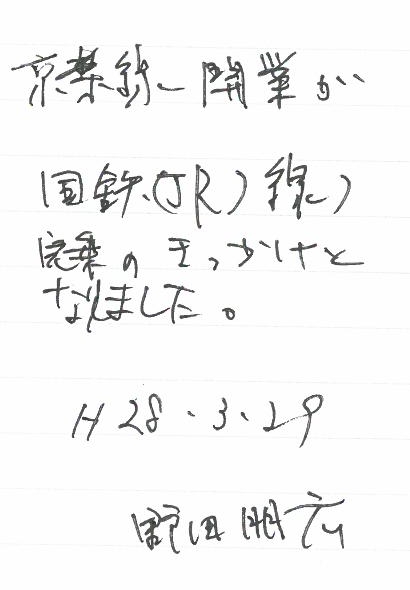 京葉線の開業が
国鉄(JR)線の
のきっかけと
なりました。
H28.3.29
野田